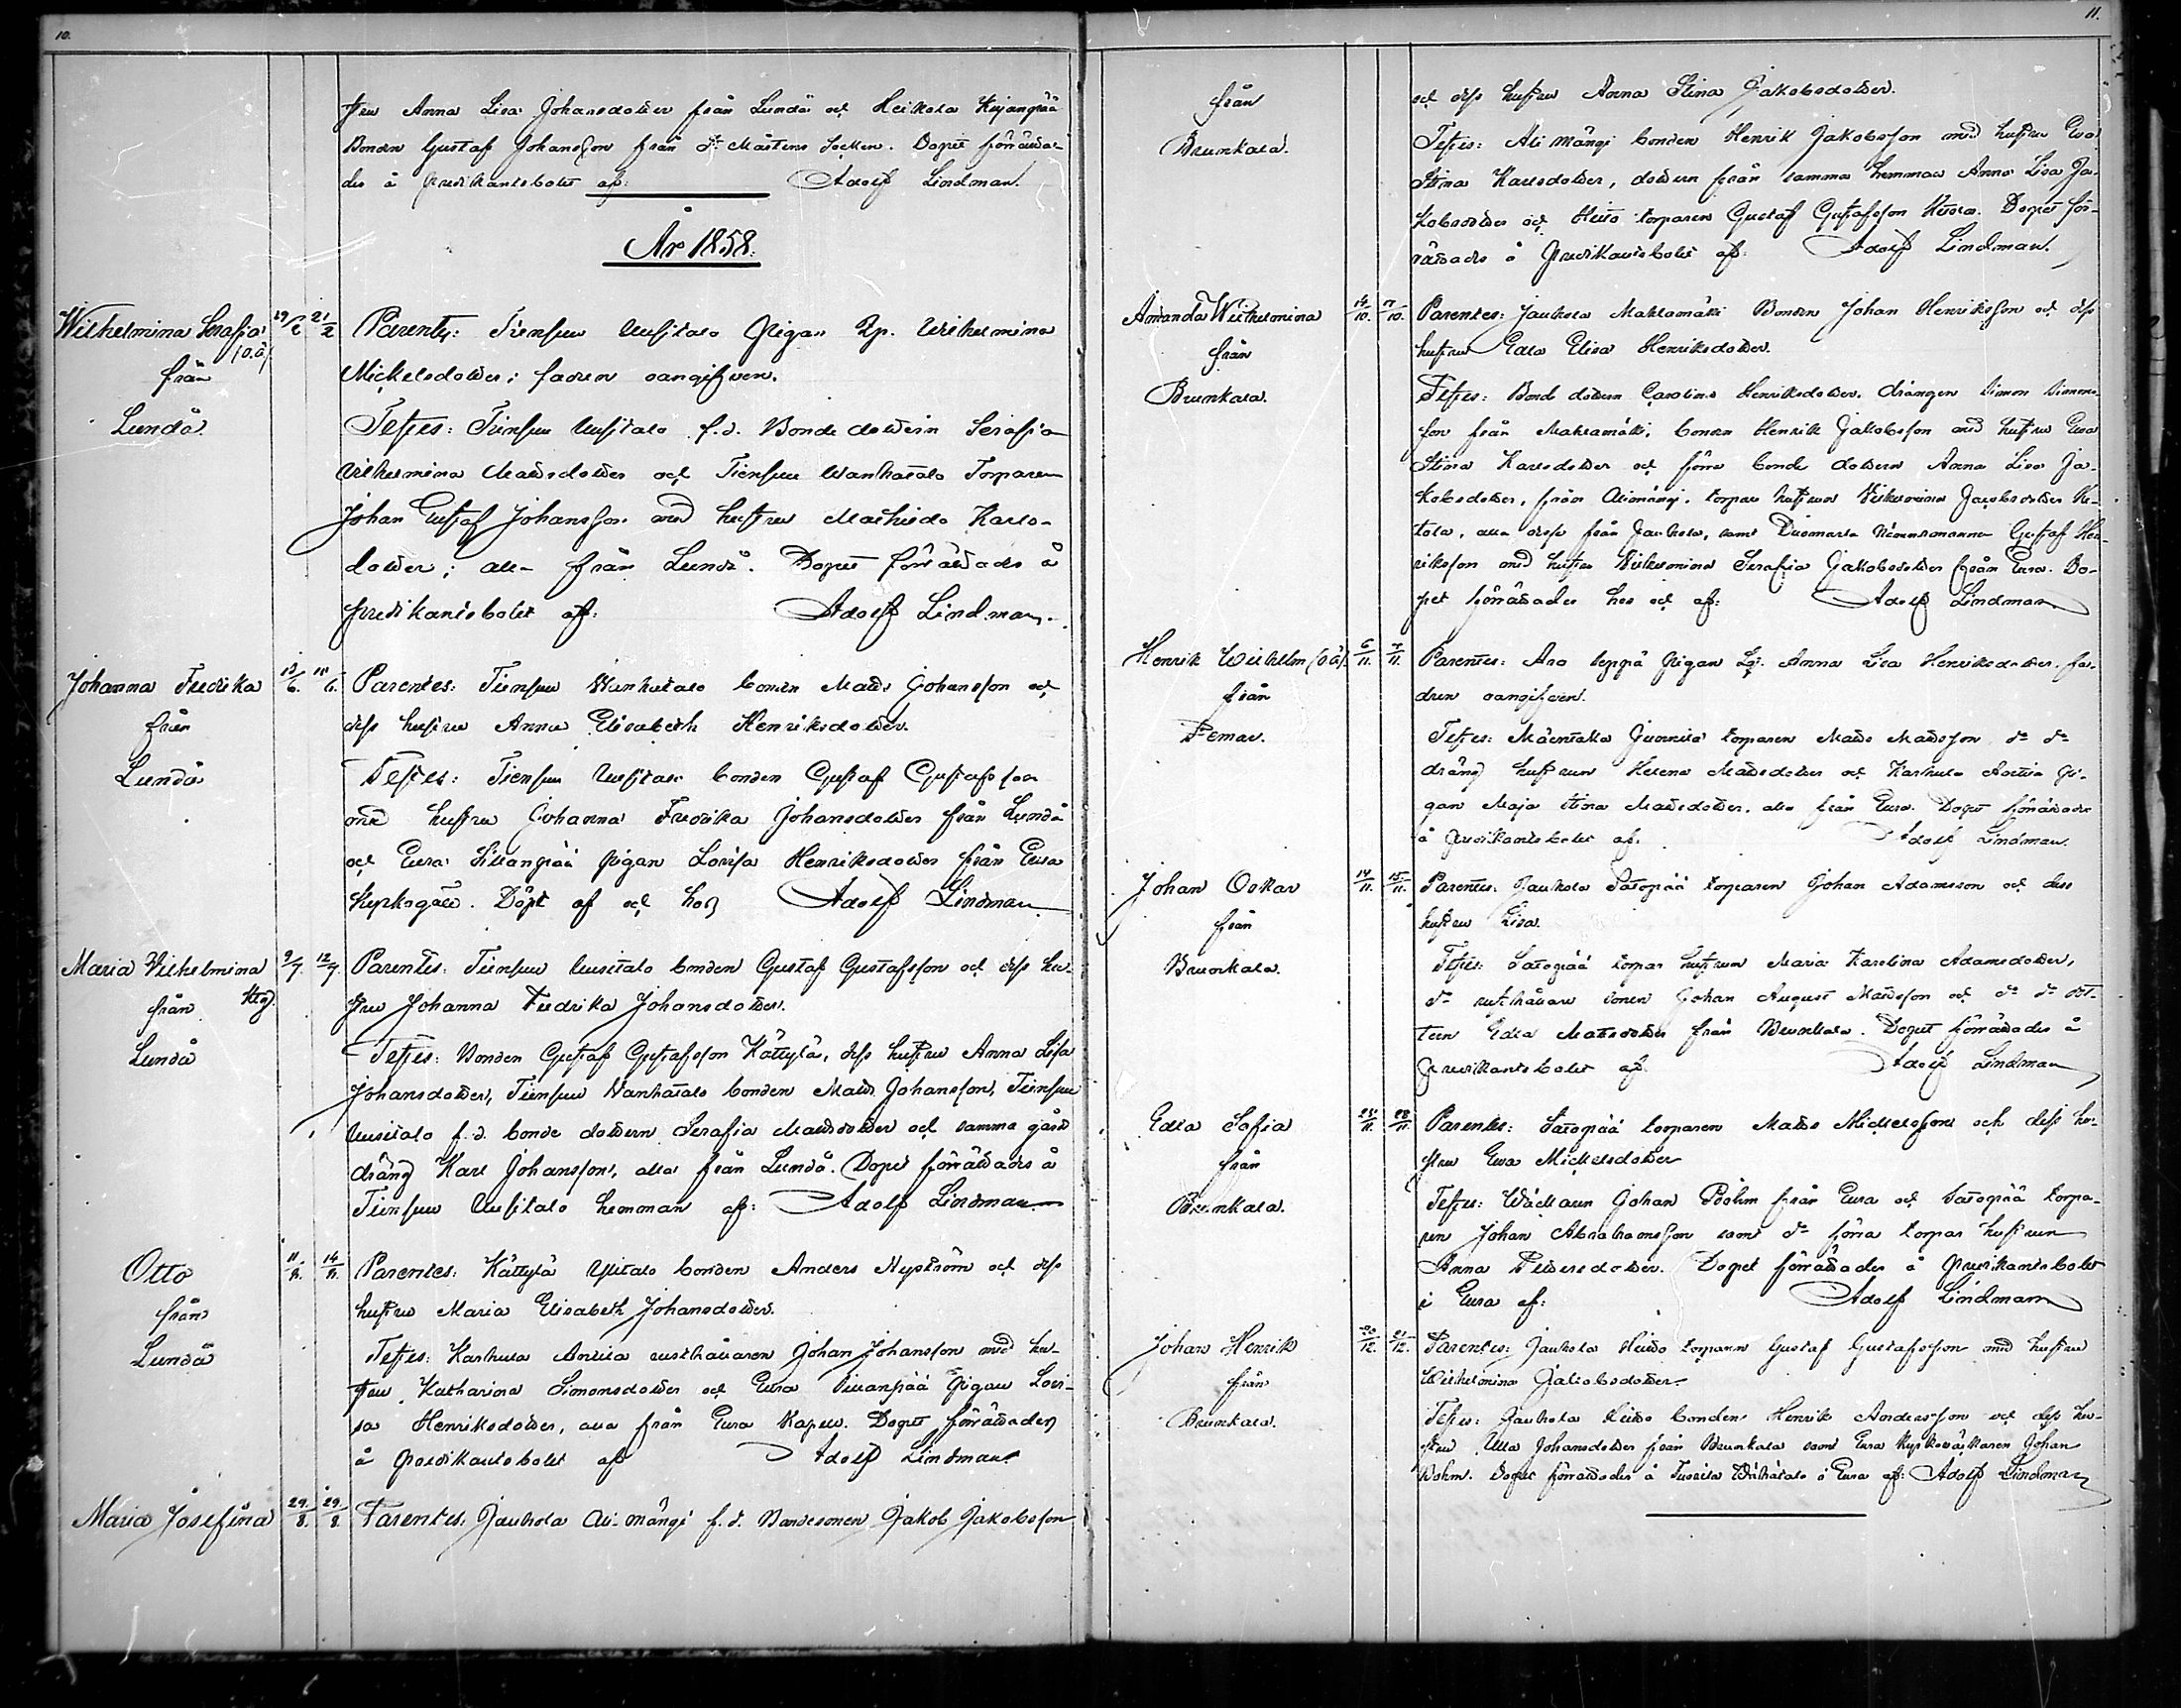 10.
stru Anna Lisa Johansdotter från Lundå och Heikola Kujanpää
Bonden Gustaf Johansson från St Mårtens Socken. Dopet förrätta-
des å predikantsbolet af: Adolf Lindman.
År 1858.
Wilhelmina Serafia (o.ä)
från
Lundå.
19/2 21/2
Parentes: Tiensuu Uusitalo Pigan Wilhelmina
Mickelsdotter; fadren oangifven.
Testes: Tiensuu Uusitalo f.d. Bonde dottern Serafia
Wilhelmina Matsdotter och Tiensuu Wanhatalo Torparen
Johan Gustaf Johansson med hustru Mathilda Karls-
dotter; alla från Lundå. Dopet förrättades å
predikantsbolet af: Adolf Lindman.
Johanna Fredrika
från
Lundå
Parentes: Tiensuu Wanhatalo bonden Matts Johansson och
dess hustru Anna Elisabeth Henriksdotter.
Testes: Tiensuu Uusitalo bonden Gustaf Gustafsson
med hustru Johanna Fredrika Johansdotter från Lundå
och Eura pigan Lovisa Henriksdotter från Eura
Kyrkogård. Döpt af och hos Adolf Lindman
Maria Wilhelmina
från
Lundå
9/7. 12/7.
Parentes: Tiensuu Uusitalo bonden Gustaf Gustafsson och dess hu-
stru Johanna Fredrika Johansdotter.
Testes: Bonden Gustaf Gustafsson Kättylä, dess hustru Anna Lisa
Johansdotter, Tiensuu Wanhatalo bonden Matts Johansson, Tiensuu
Uusitalo f.d. bonde dottern Serafia Mattsdotter och samma gård
dräng Karl Johansson, alla från Lundå. Dopet förrättades å
Tiensuu Uusitalo hemman af: Adolf Lindman
Otto
från
Lundå
11/8. 14/8.
Parentes: Kättylä Ylitalo bonden Anders Nyström och dess
hustru Maria Elisabeth Johansdotter.
Testes: Karhula Anttila rusthållaren Johan Johansson med hu-
stru Katharina Simonsdotter och Eura pigan Lovi-
sa Henriksdotter, alla från Eura Kapell. Dopet förrättades
å predikantsbolet af Adolf Lindman
Maria Josefina
29./8. 29./8.
Parentes: Jauhola Ali-Mängi f.d. Bondesonen Jakob Jakobsson
11.
från
Brunkala.
och dess hustru Anna Stina Jakobsdotter.
Testes: Ali Mängi bonden Henrik Jakobsson med hustru Eva
Stina Karlsdotter, dottern från samma hemman Anna Lisa Ja-
kobsdotter och torparen Gustaf Gustafsson Dopet för-
rättades å Predikantsbolet af: Adolf Lindman.
Amanda Wilhelmina
från
Brunkala.
14/10. 17/10.
Parentes: Jauhola Mahlamäki Bonden Johan Henriksson och dess
hustru Edla Elisa Henriksdotter.
Testes: Bond dottern Carolina Henriksdotter, drängen Simon Simons-
son från Mahlamäki, bonden Henrik Jakobsson med hustru Eva
Stina Karlsdotter och förra bonde dottern Anna Lisa Ja-
kobsdotter, från Alimängi, torpare hustrun Wilhelmina Jacobsdotter
alla desse från Jauhola, samt Nämndemannen Gustaf Hen-
riksson med hustru Wilhelmina Serafia Jakobsdotter från Eura. Do-
pet förrättades hos och af: Adolf Lindman.
Henrik Wilhelm (o.ä).
från
6/11. 7/11.
Parentes: pigan Anna Lisa Henriksdotter, fa-
dren oangifven.
Testes: Junnila torparen Matts Mattsson do do
dräng hustrun Helena Mattsdotter och Karhula Anttila pi-
gan Maja Stina Mattsdotter, alla från Eura. Dopet förrättades
å predikantsbolet af: Adolf Lindman.
Johan Oskar
från
Brunkala.
14/11. 15/11.
Parentes: Jauhola Satopää torparen Johan Adamsson och dess
hustru Lisa.
Testes: Satopää torpar hustrun Maria Karolina Adamsdotter,
do rusthållare sonen Johan August Mattsson och do do dot-
tern Edla Matsdotter från Brunkala. Dopet förrättades å
predikantsbolet af Adolf Lindman
Edla Sofia
från
Brunkala.
Parentes: Satopää torparen Matts Mickelsson och dess hu-
stru Eva Mickelsdotter
Testes: Johan Böhm från Eura och Satopää torpa-
ren Johan Abrahamsson samt do förra torpar hustrun
Anna Dopet förrättades å predikantsbolet
i Eura af: Adolf Lindman
Johan Henrik
från
Brunkala.
20/12. 21/12.
Parentes: Jauhola torparen Gustaf Gustafsson med hustru
Wilhelmina Jakobsdotter.
Testes: Jauhola bonden Henrik Andersson och dess hu-
stru Ulla Johansdotter från Brunkala samt Eura Kyrkoväktaren Johan
Bohm. Dopet förrättades å i Eura af: Adolf Lindman